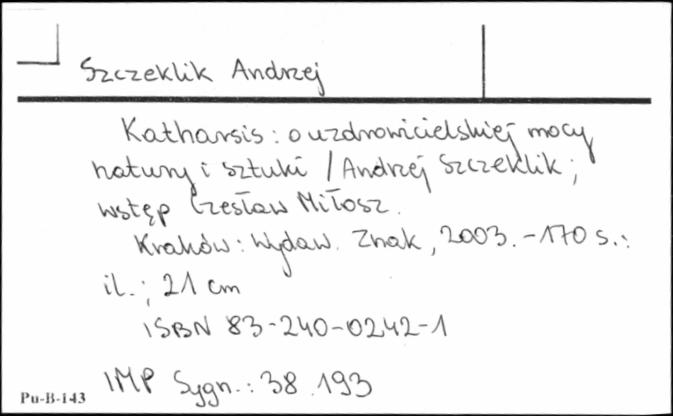 Szczeklik Andrzej
Katharsis : o uzdrowicielskiej mocy
natury i sztuki / Andrzej Szczeklik ;
wstęp Czesław Miłosz.
Kraków : Wydaw. Znak, 2003. - 170 s. :
il. ; 21 cm
ISBN 83-240-0242-1
IMP Sygn. : 38.193
Pu-B-143